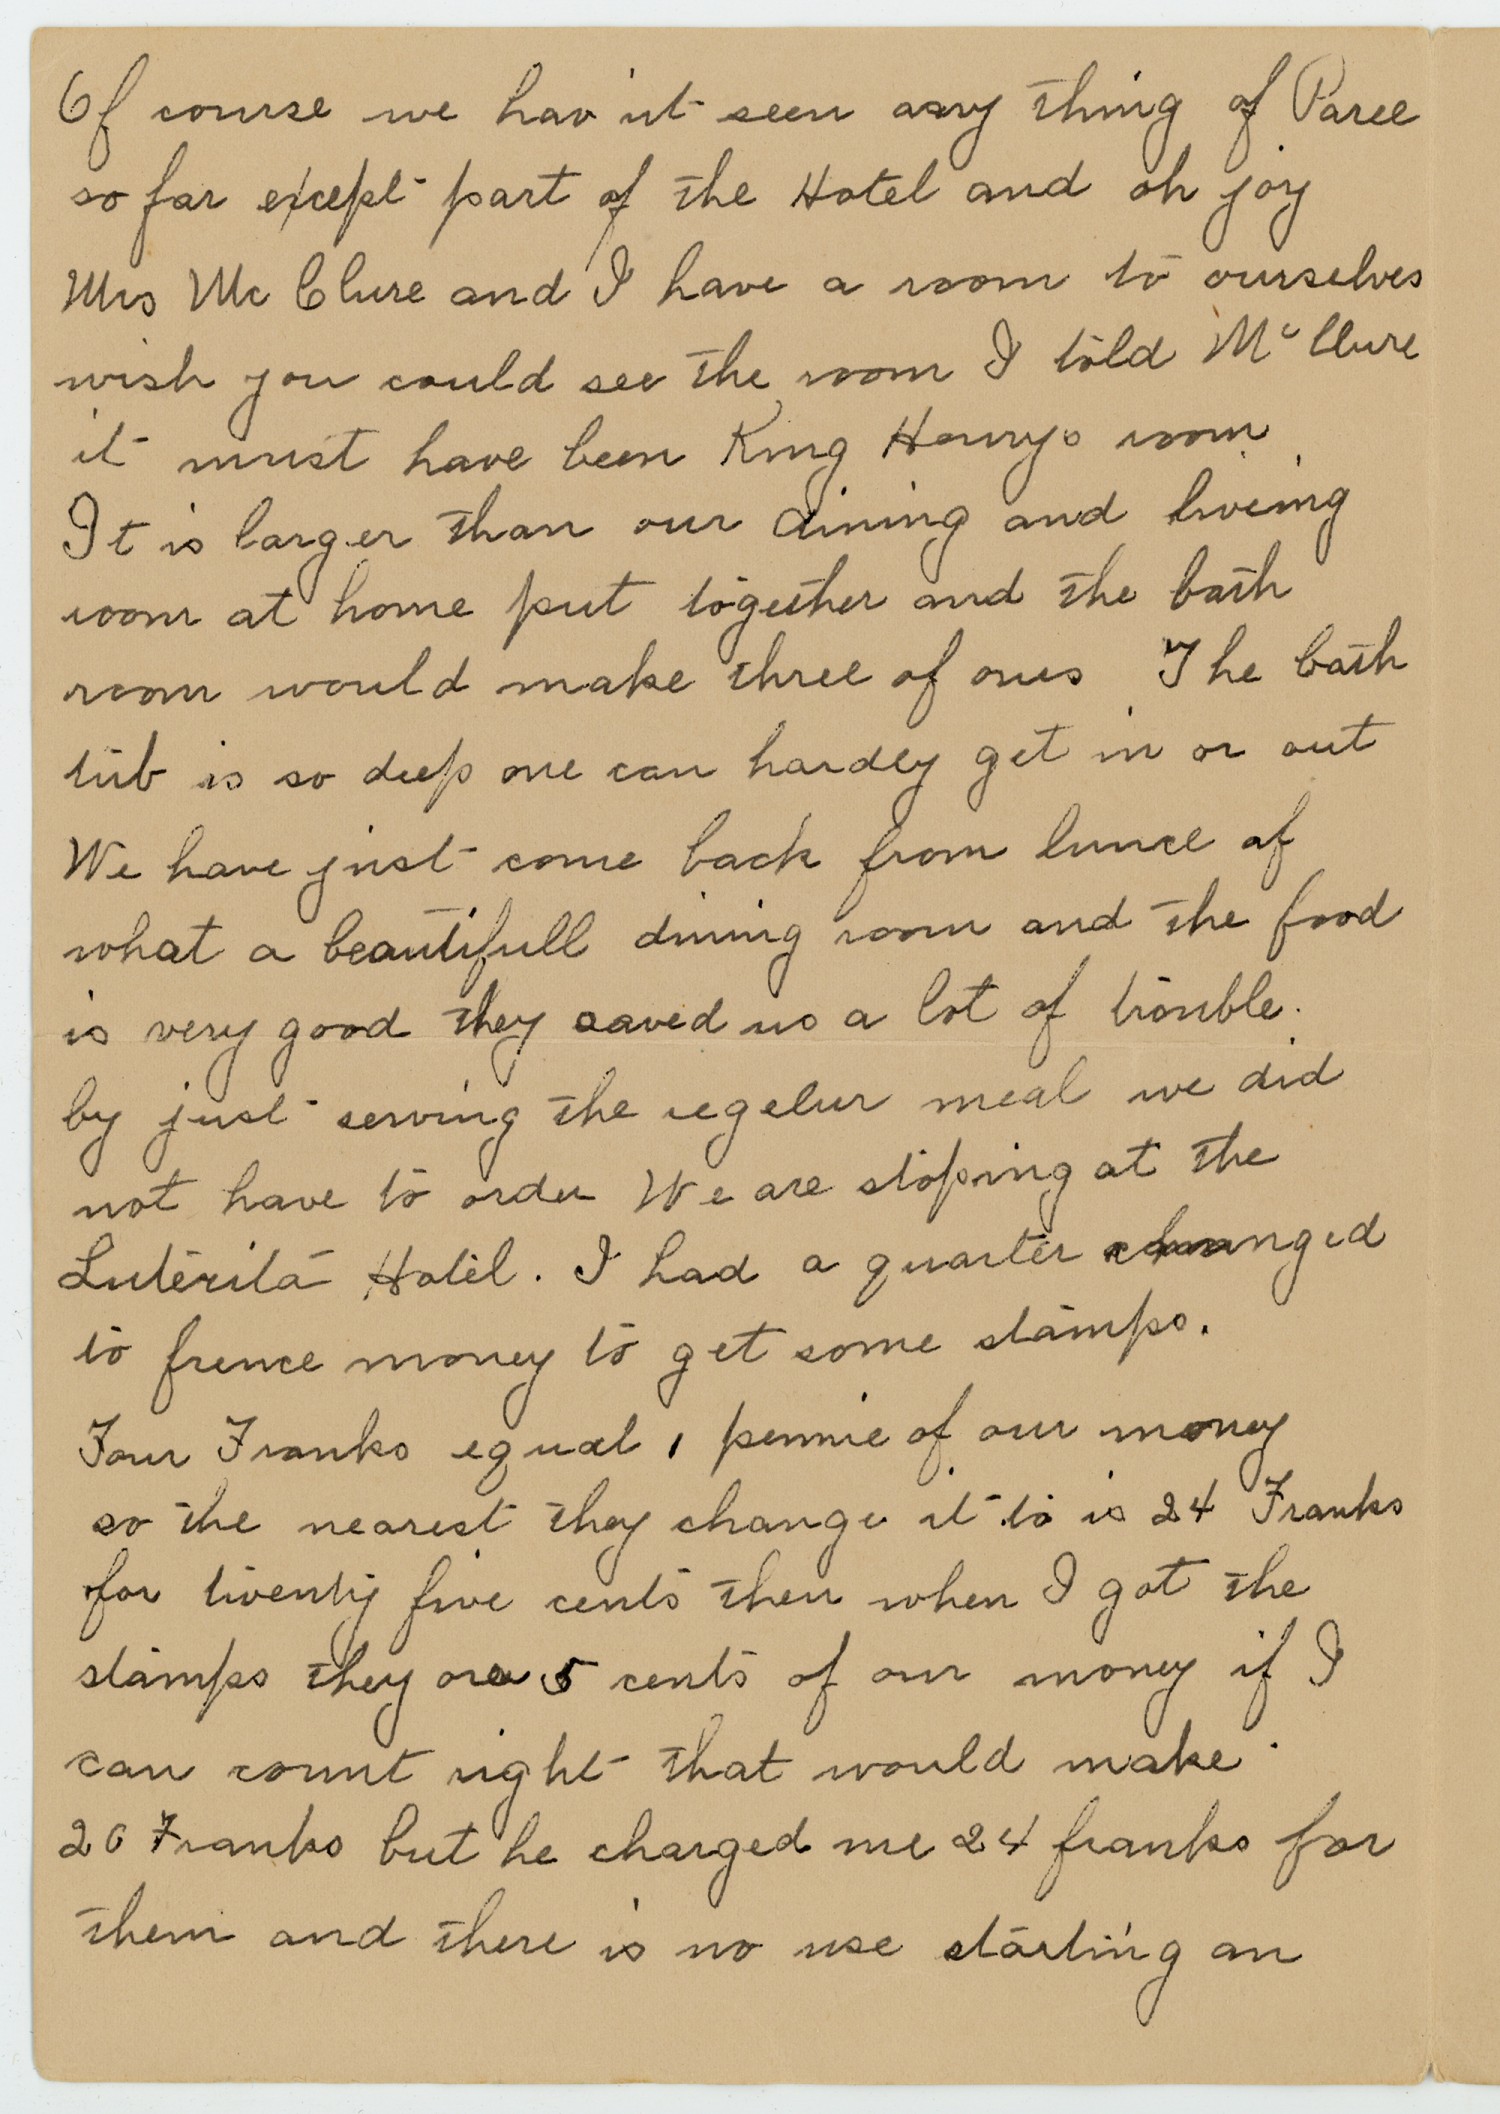 Of course we hav'nt seen any thing of Paree
so far except part of the Hotel and oh joy
Mrs McClure and I have a room to ourselves
wish you could see the room I told McClure
it must have been King Henrys room
It is larger than our dining and liveing
room at home put together and the bath
room would make three of ours The bath
tub is so deep one can hardley get in or out
We have just come back from lunce of
what a beautifull dining room and the food
is very good they saved us a lot of trouble.
by just serving the regelur meal we did
not have to order We are stoping at the
Luterita Hotel. I had a quarter changed
to frence money to get some stamps.
Four Franks equal 1 pennie of our money
so the nearest they change it to is 24 Franks
for twenty five cents then when I got the
stamps they are 5 cents of our money if I
can count right that would make
20 Franks but he charged me 24 franks for
them and there is no use starting an